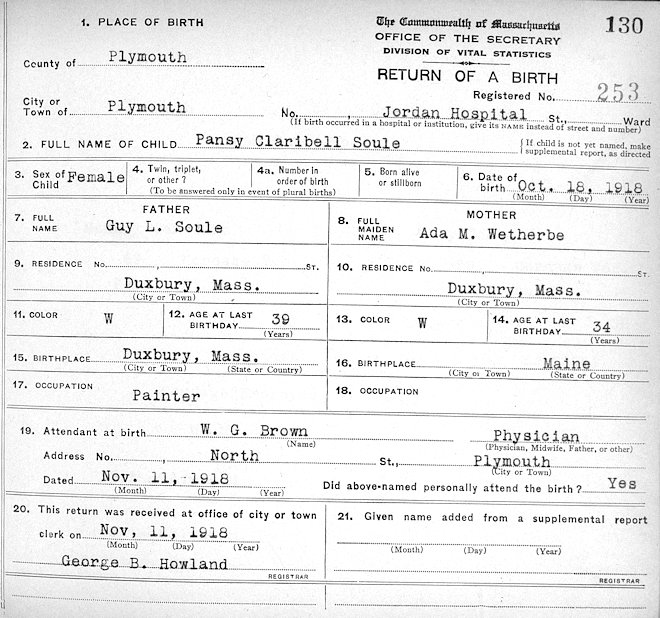 1. PLACE OF BIRTH
The Commonwealth of Massachusetts
130
OFFICE OF THE SECRETARY
DIVISION OF VITAL STATISTICS
RETURN OF A BIRTH
County of Plymouth
Registered No. 253
City or
Town of Plymouth No. , Jordan Hospital St., Ward
(If birth occurred in a hospital or institution, give its NAME instead of street and number)
2. FULL NAME OF CHILD Pansy Claribell Soule
{If child is not yet named, make
supplemental report, as directed
3. Sex of Child Female
4. Twin, triplet, or other ?
4a. Number in order of birth
(To be answered only in event of plural births)
5. Born alive or stillborn
6. Date of birth Oct. 18, 1918
(Month) (Day) (Year)
FATHER
7. FULL NAME Guy L. Soule
MOTHER
8. FULL MAIDEN NAME Ada M. Wetherbe
9. RESIDENCE No. , ST.
Duxbury, Mass.
(City or Town)
10. RESIDENCE No. , ST.
Duxbury, Mass.
(City or Town)
11. COLOR W
12. AGE AT LAST BIRTHDAY 39
(Years)
13. COLOR W
14. AGE AT LAST BIRTHDAY 34
(Years)
15. BIRTHPLACE Duxbury, Mass.
(City or Town) (State or Country)
16. BIRTHPLACE Maine
(City or Town) (State or Country)
17. OCCUPATION
Painter
18. OCCUPATION
19. Attendant at birth W. G. Brown Physician
(Name) (Physician, Midwife, Father, or other)
Address No. , North St., Plymouth
(City or Town)
Dated Nov. 11, 1918
(Month) (Day) (Year)
Did above-named personally attend the birth ? Yes
20. This return was received at office of city or town
clerk on Nov, 11, 1918
(Month) (Day) (Year)
George B. Howland
REGISTRAR
21. Given name added from a supplemental report
(Month) (Day) (Year)
REGISTRAR